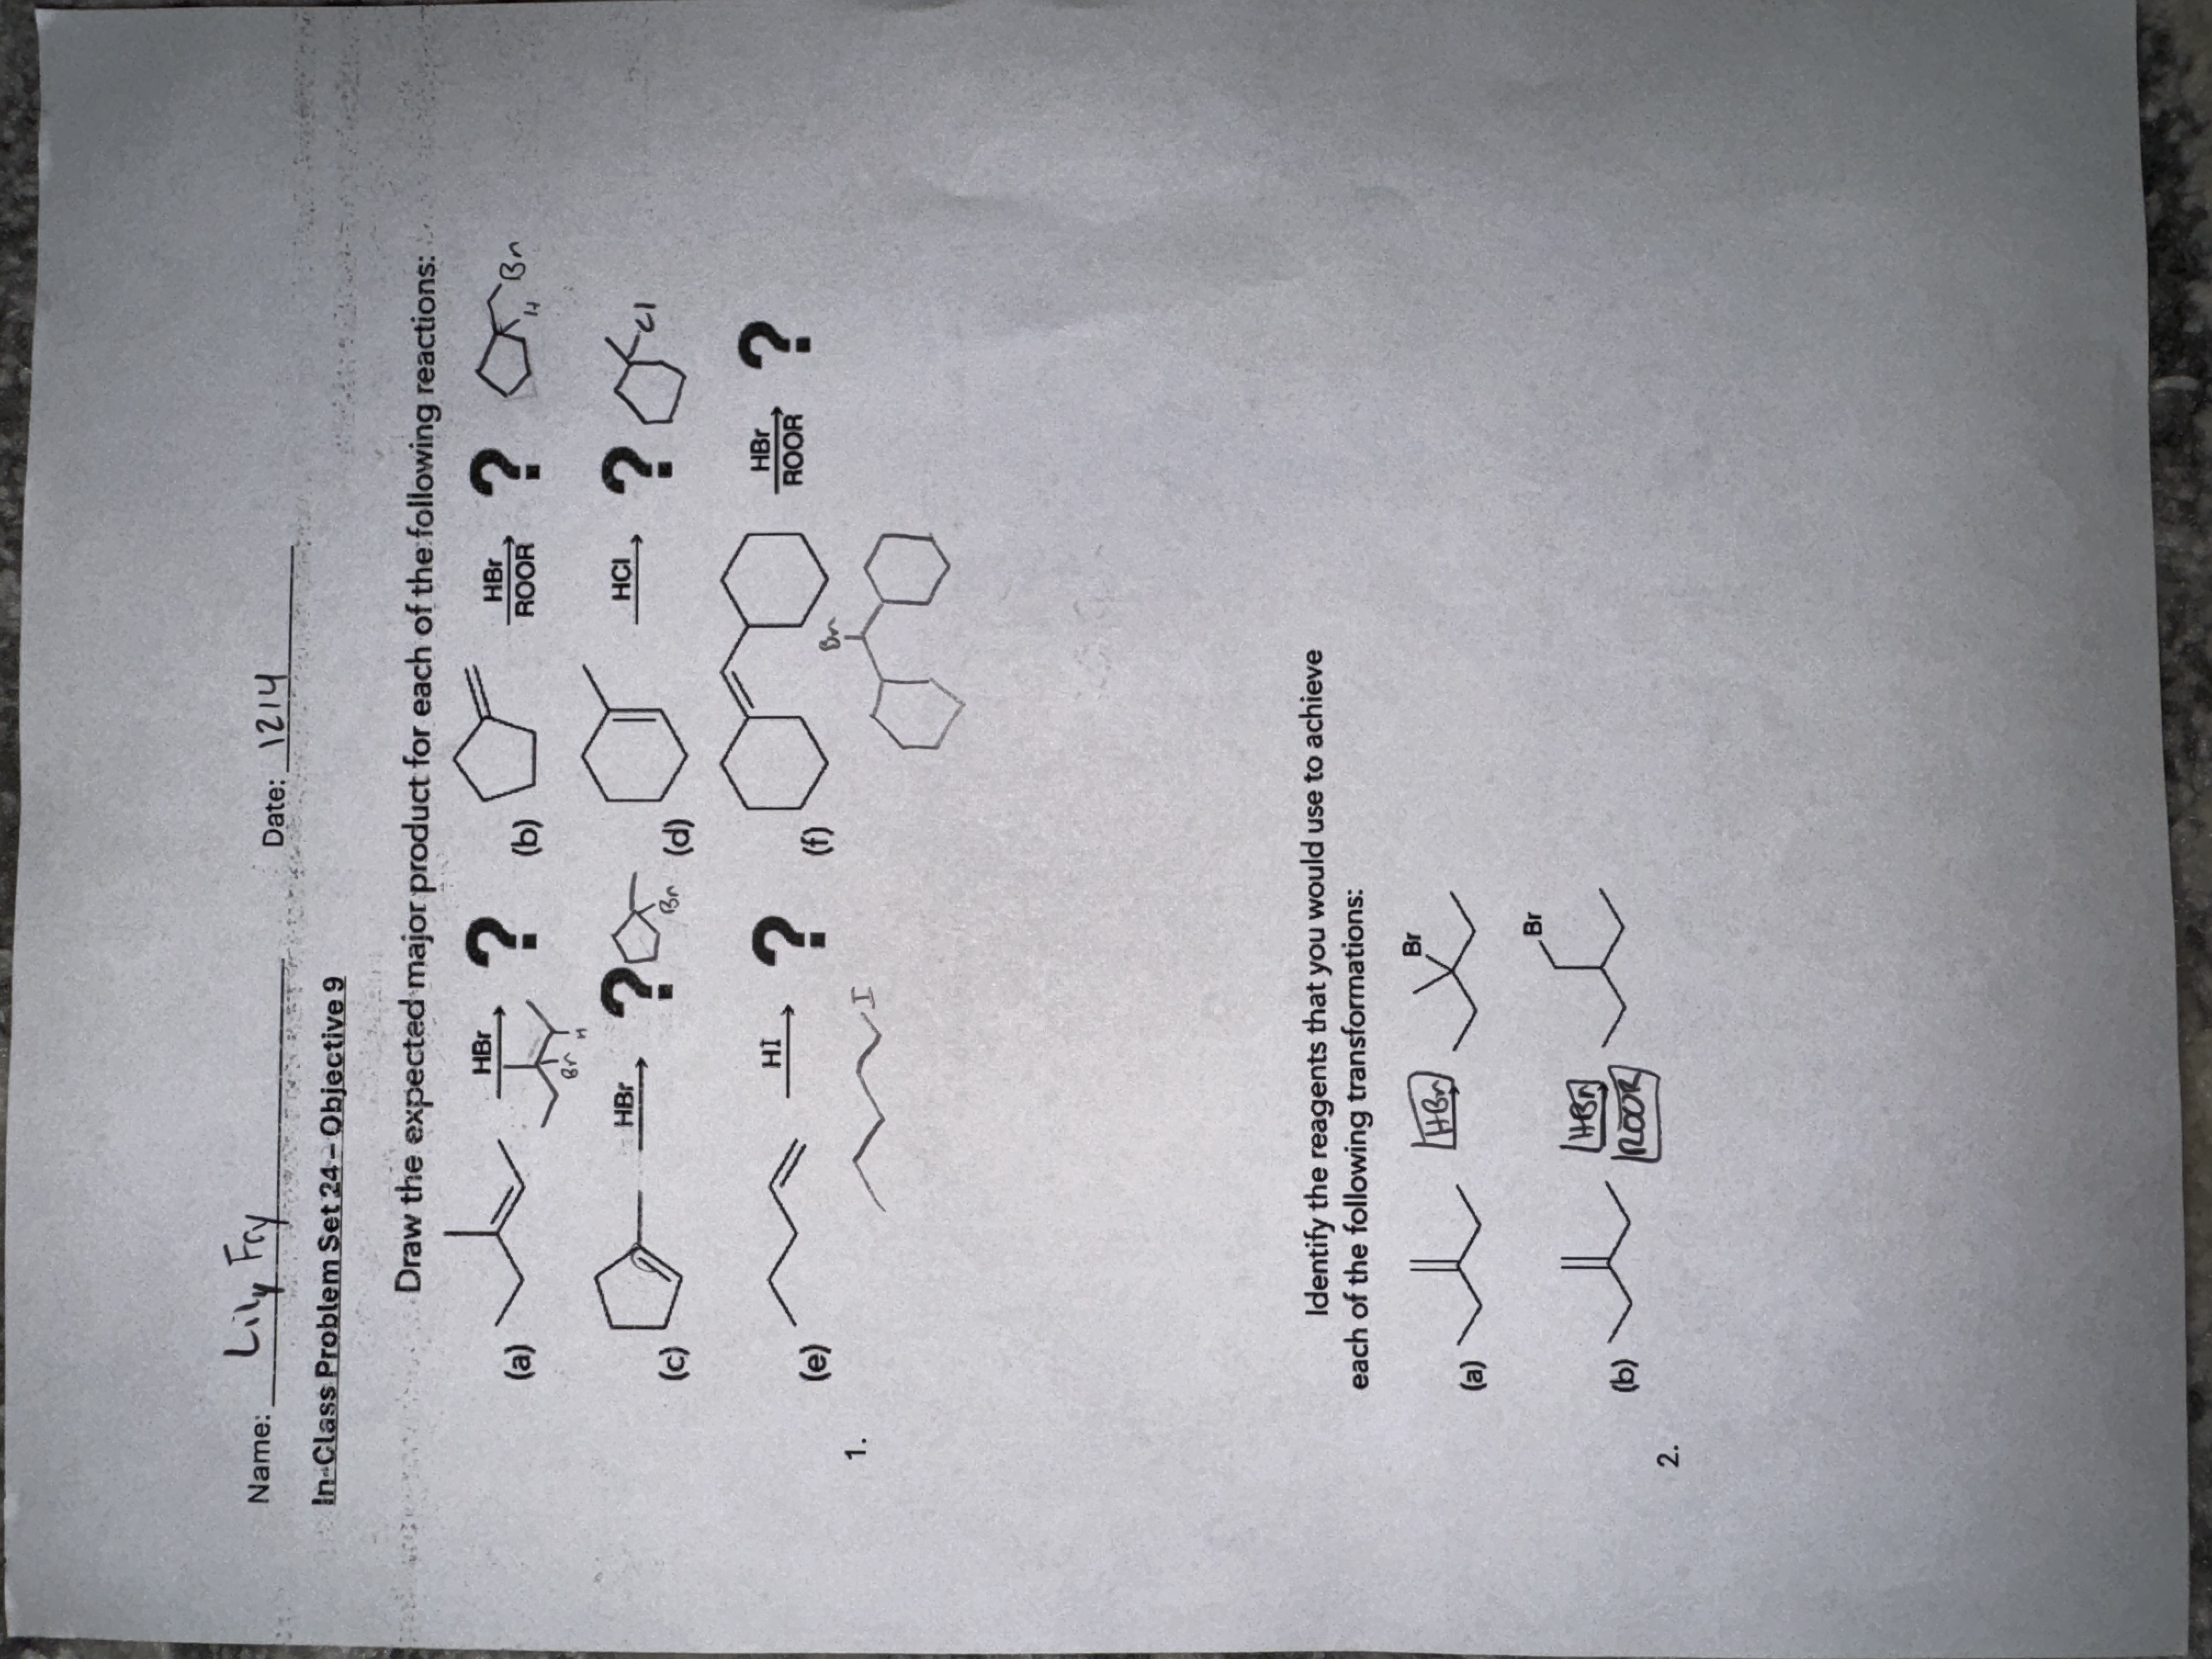 Name: Lily Fry Date: 1214
In-Class Problem Set 24 – Objective 9
Draw the expected major product for each of the following reactions:
(a) HBr ? Br H
(b) HBr ROOR ? H Br
(c) HBr ? Br
(d) HCl ? Cl
(e) HI ? I
(f) HBr ROOR ? Br
1.
Identify the reagents that you would use to achieve
each of the following transformations:
(a) HBr Br
(b) HBr ROOR Br
2.